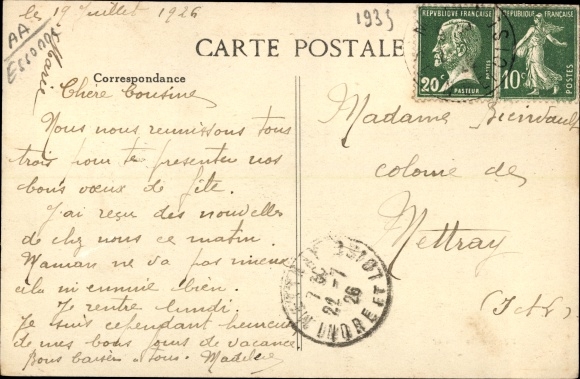 le 19 Juillet 1926
1935
AA
Marie
CARTE POSTALE
RÉPUBLIQUE FRANÇAISE
20c
PASTEUR
POSTES
RÉPUBLIQUE FRANÇAISE
10c
POSTES
Correspondance
Chère Cousine
Nous nous reunissons tous
trois pour te presenter nos
bons vœux de fête.
J'ai reçu des nouvelles
de chez nous ce matin.
Maman ne va pas mieux
cela m'ennuie bien.
Je rentre lundi.
Je suis cependant heureuse
de mes bons jours de vacance
Bons baisers à tous. Madeleine
Madame
colonie de
Mettray
(I et L)
22 - 7
26
INDRE ET LOIRE